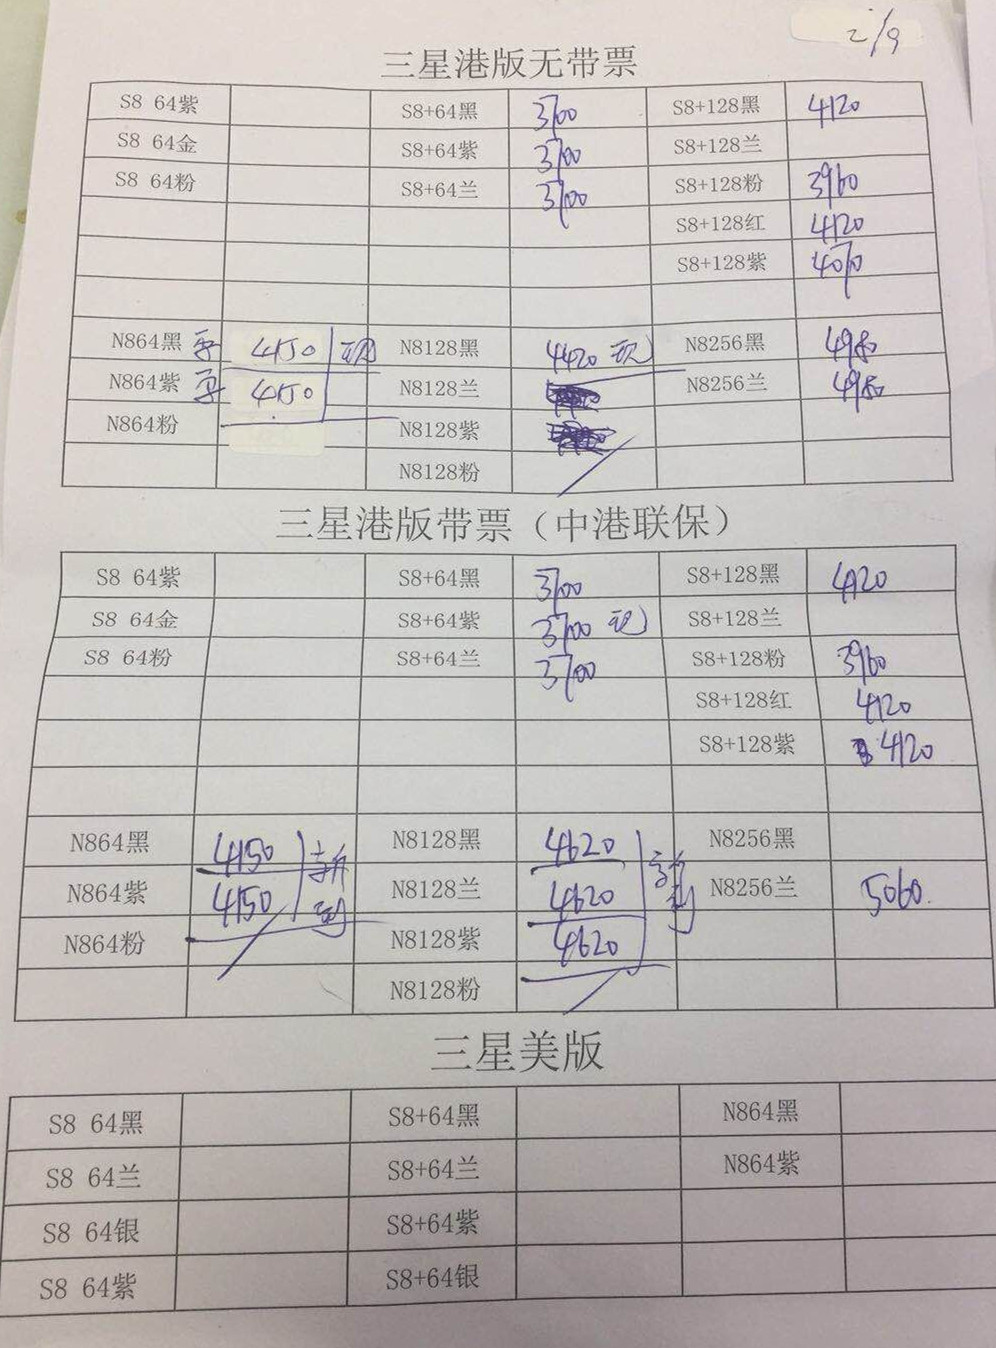 2/9
三星港版无带票
S8 64紫 S8+64黑 3700 S8+128黑 4120
S8 64金 S8+64紫 3700 S8+128兰
S8 64粉 S8+64兰 3700 S8+128粉 3960
S8+128红 4120
S8+128紫 4070
N864黑 4150 现 N8128黑 4420 现 N8256黑 4980
N864紫 4150 N8128兰 N8256兰 4980
N864粉 N8128紫
N8128粉
三星港版带票（中港联保）
S8 64紫 S8+64黑 3700 S8+128黑 4120
S8 64金 S8+64紫 3700 现 S8+128兰
S8 64粉 S8+64兰 3700 S8+128粉 3960
S8+128红 4120
S8+128紫 4120
N864黑 4150 新到 N8128黑 4620 新到 N8256黑
N864紫 4150 N8128兰 4620 N8256兰 5060
N864粉 N8128紫 4620
N8128粉
三星美版
S8 64黑 S8+64黑 N864黑
S8 64兰 S8+64兰 N864紫
S8 64银 S8+64紫
S8 64紫 S8+64银